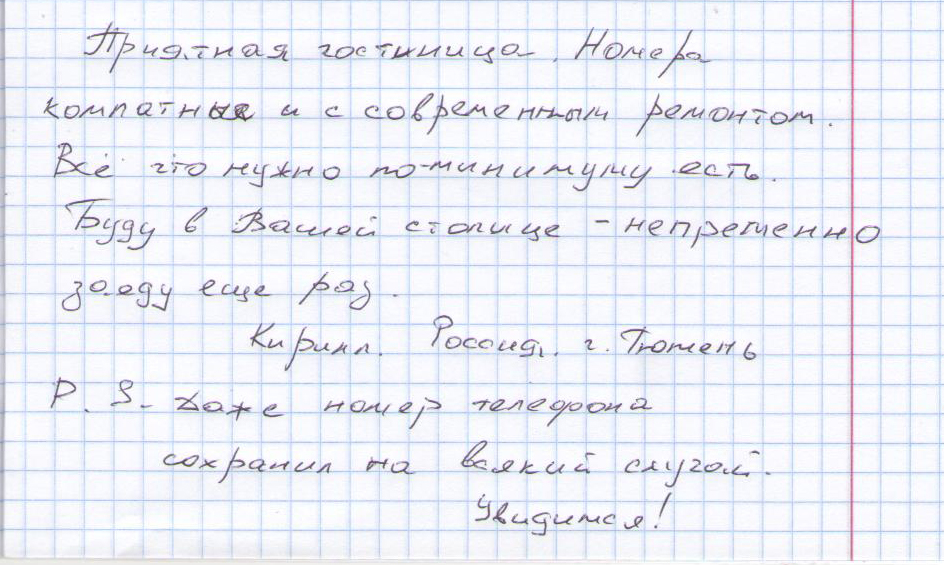 Приятная гостиница. Номера
компатные и с современным ремонтом.
Всё что нужно по-минимуму есть.
Буду в Вашей столице - непременно
заеду еще раз.
Кирилл. Россия. г. Тюмень
P. S. Даже номер телефона
сохранил на всякий случай.
Увидимся!